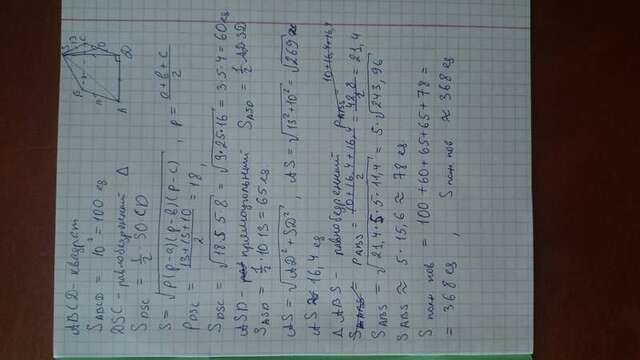 ABCD - квадрат
S ABCD = 10² = 100 ец
DSC - равнобезренний Δ
S DSC = 1/2 · SO CD
S = √p(p-a)(p-b)(p-c) , p = (a+b+c)/2
P DSC = (13+13+10)/2 = 18,
S DSC = √18 5 5 8 = √9·25·16 = 3·5·4 = 60 ец
ASD - прямоугольний S ASD = 1/2 AD SD
S ASD = 1/2 · 10 13 = 65 ец
AS = √AD² + SD² , AS = √13² + 10² = √269 ≈
AS ≈ 16,4 ец
Δ ABS - равнобезренний P ABS = 10+16,4+16,4
P ABS = (10+16,4+16,4)/2 = 42,8/2 = 21,4
S ABS = √21,4·5·5·11,4 = 5·√243,96
S ABS ≈ 5·15,6 ≈ 78 ец
S полн пов = 100 + 60 + 65 + 65 + 78 =
= 368 ец , S полн пов ≈ 368 ец
S
B
C
A
D
13